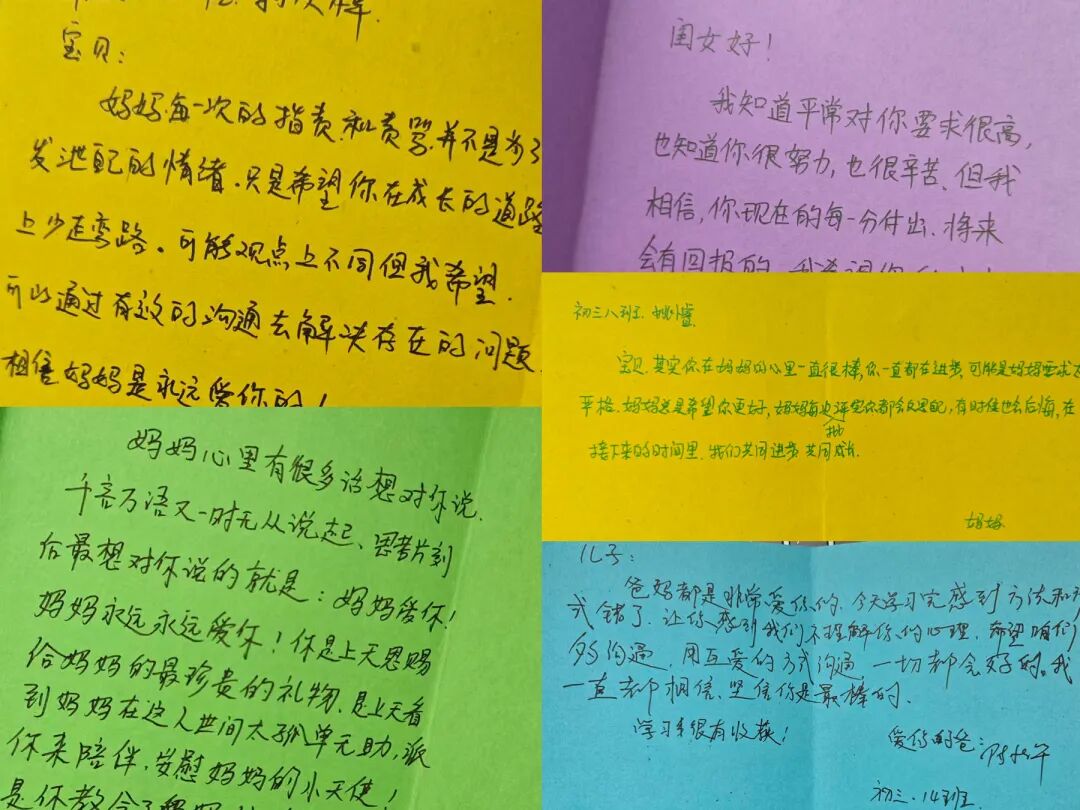 宝贝：
妈妈每一次的指责和责骂并不是为了
发泄自己的情绪，只是希望你在成长的道路
上少走弯路。可能观点上不同但我希望
可以通过有效的沟通去解决存在的问题
相信妈妈是永远爱你的！
闺女好！
我知道平常对你要求很高，
也知道你很努力，也很辛苦，但我
相信，你现在的每一分付出，将来
会有回报的，我希望你
初三八班
宝贝，其实你在妈妈的心里一直很棒，你一直都在进步，可能是妈妈要求
严格，妈妈总是希望你更好，妈妈每次批评完你都会反思自己，有时候也会后悔，在
接下来的时间里，我们共同进步共同成长
妈妈
妈妈心里有很多话想对你说，
千言万语又一时无从说起、思考片刻
后最想对你说的就是：妈妈爱你！
妈妈永远永远爱你！你是上天恩赐
给妈妈的最珍贵的礼物，是上天看
到妈妈在这人世间太孤单无助，派
你来陪伴，安慰妈妈的小天使！
是你教会了
儿子：
爸妈都是非常爱你的，今天学习完感到方法和方
式错了，让你感到我们不理解你的心理，希望咱们
多沟通，用互爱的方式沟通，一切都会好的。我
一直都相信、坚信你是最棒的。
学习手很有收获！
爱你的爸：
初三、14班